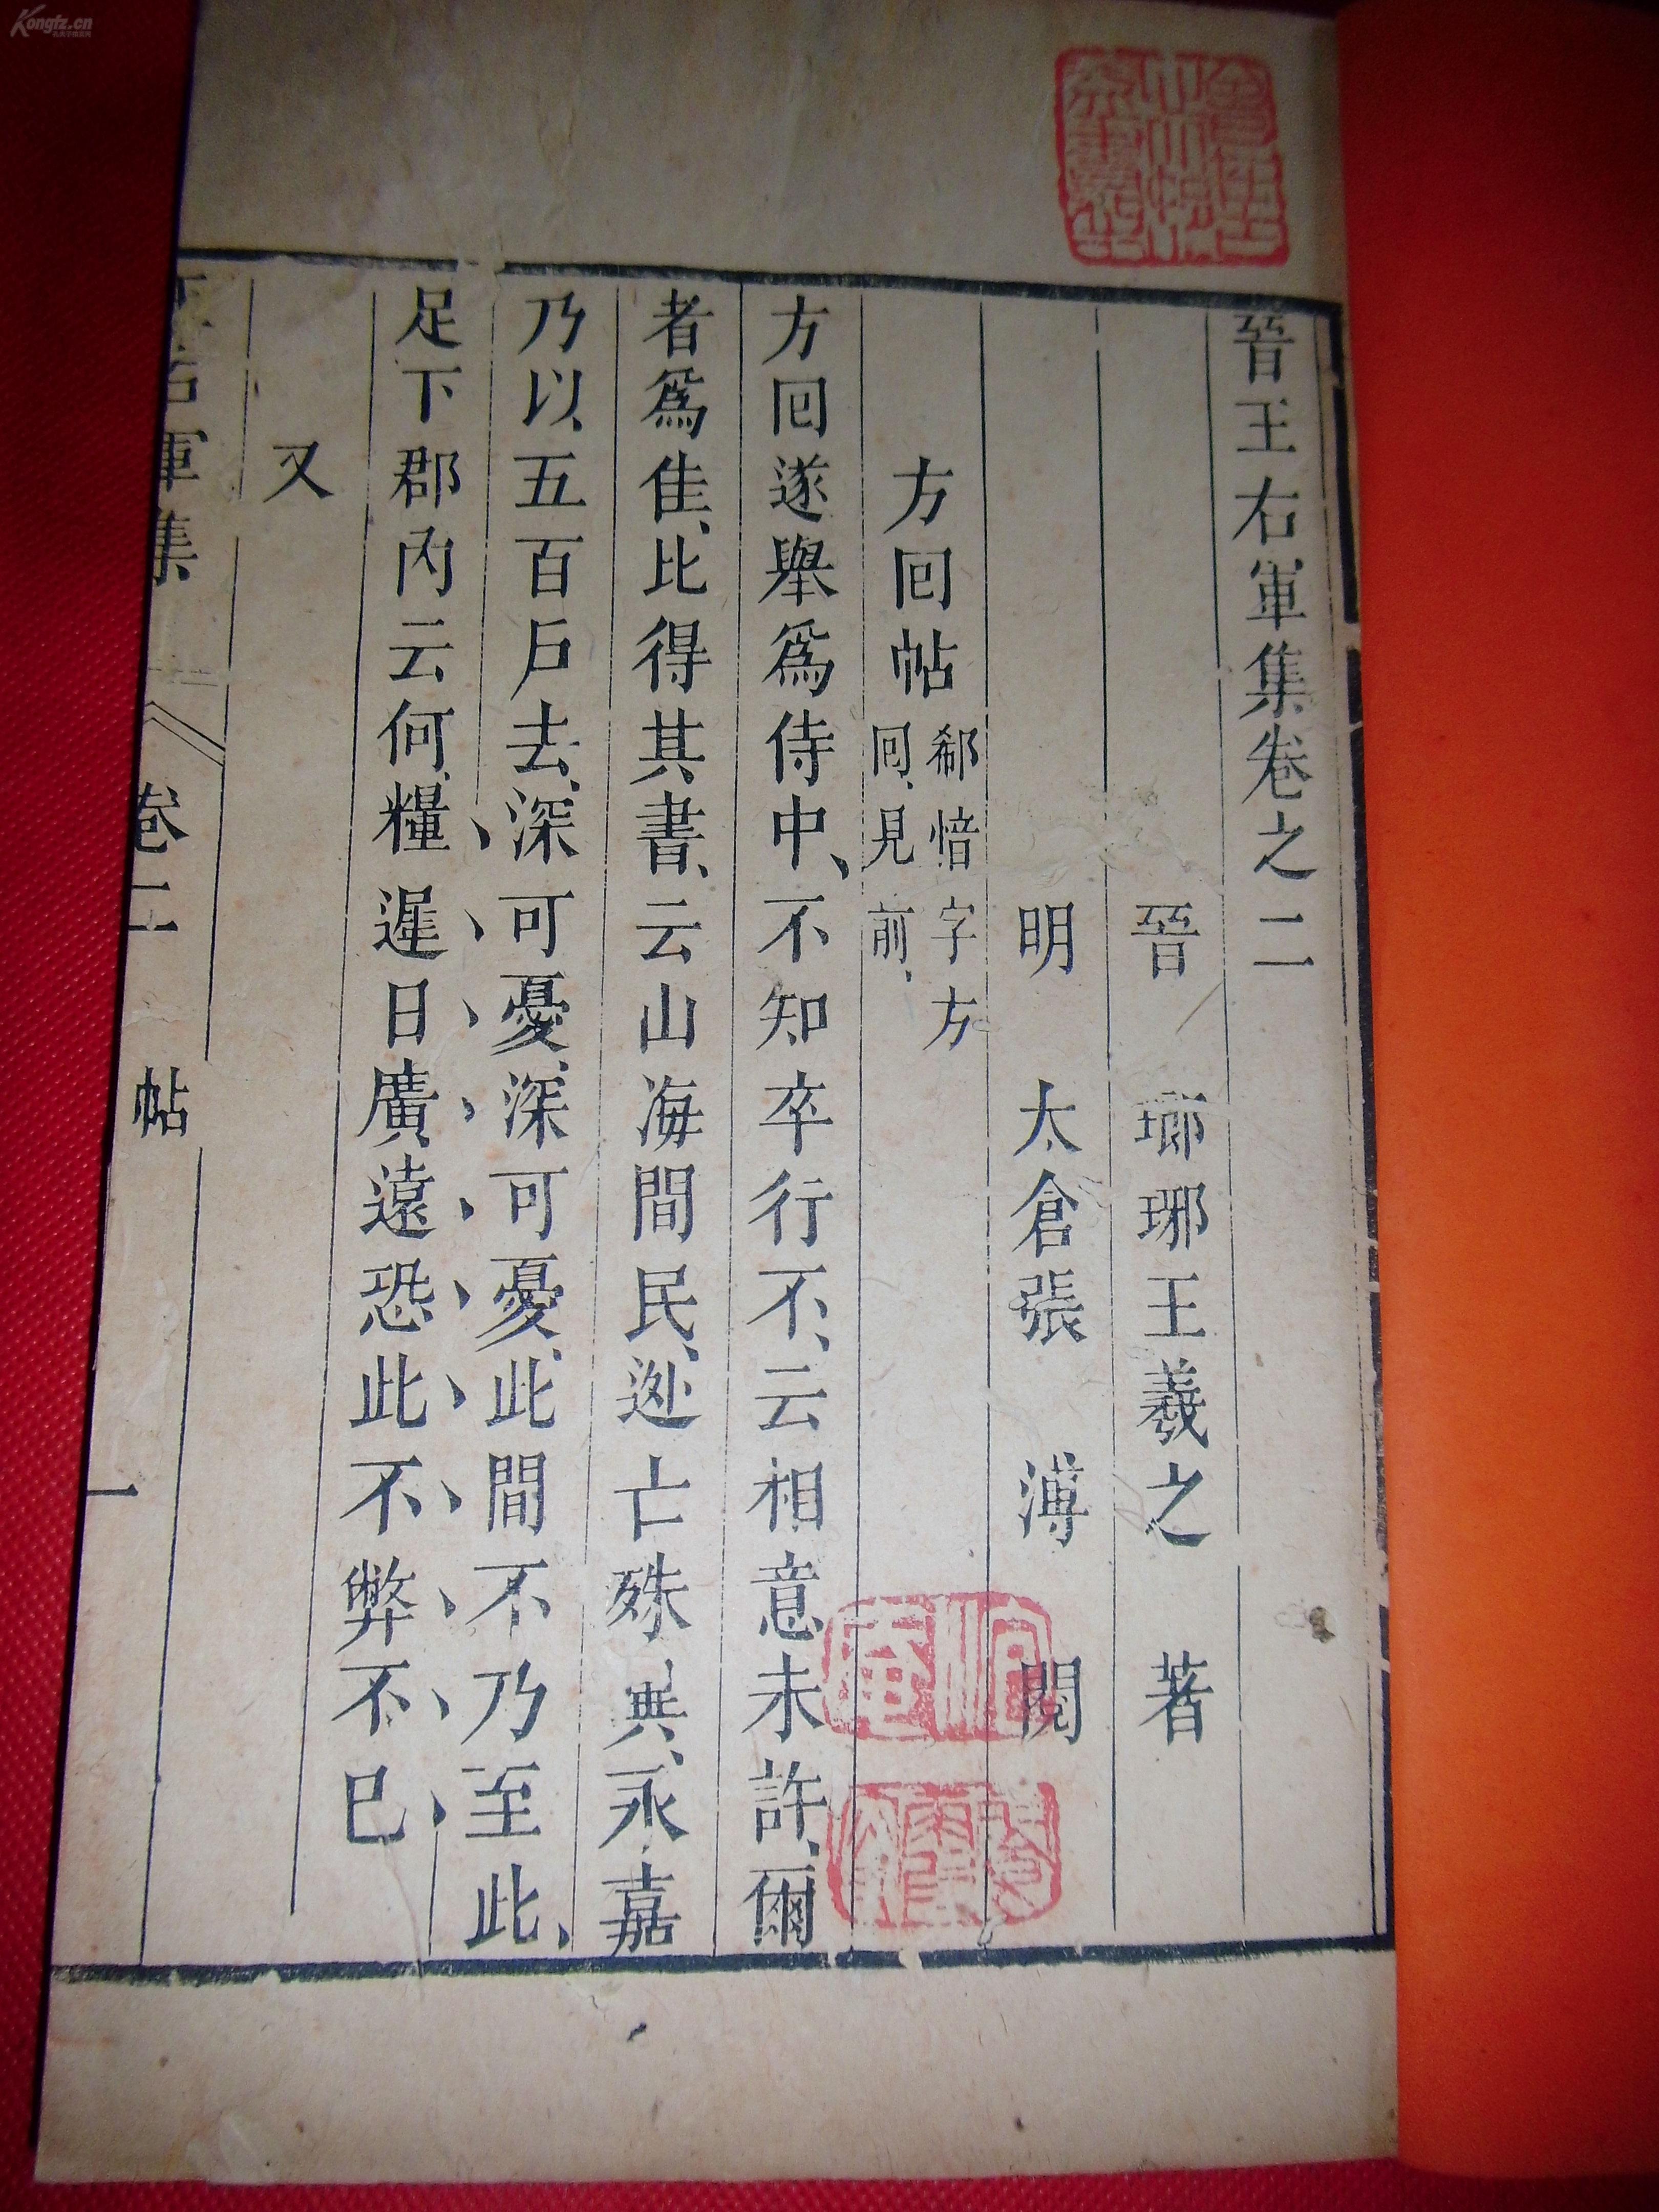 晉王右軍集卷之二
晉 瑯琊王羲之 著
明 太倉張 溥 閱
方回帖 郗愔字方回、見前、
方回遂舉爲侍中、不知卒行不、云相意未許、爾
者爲佳、比得其書、云山海間民、逃亡殊異、永嘉
乃以五百戶去、深可憂、深可憂、此間不乃至此、
足下郡內云何、糧運日廣遠恐此不弊不已
又
右軍集 卷二 帖 一
Kongfz.cn